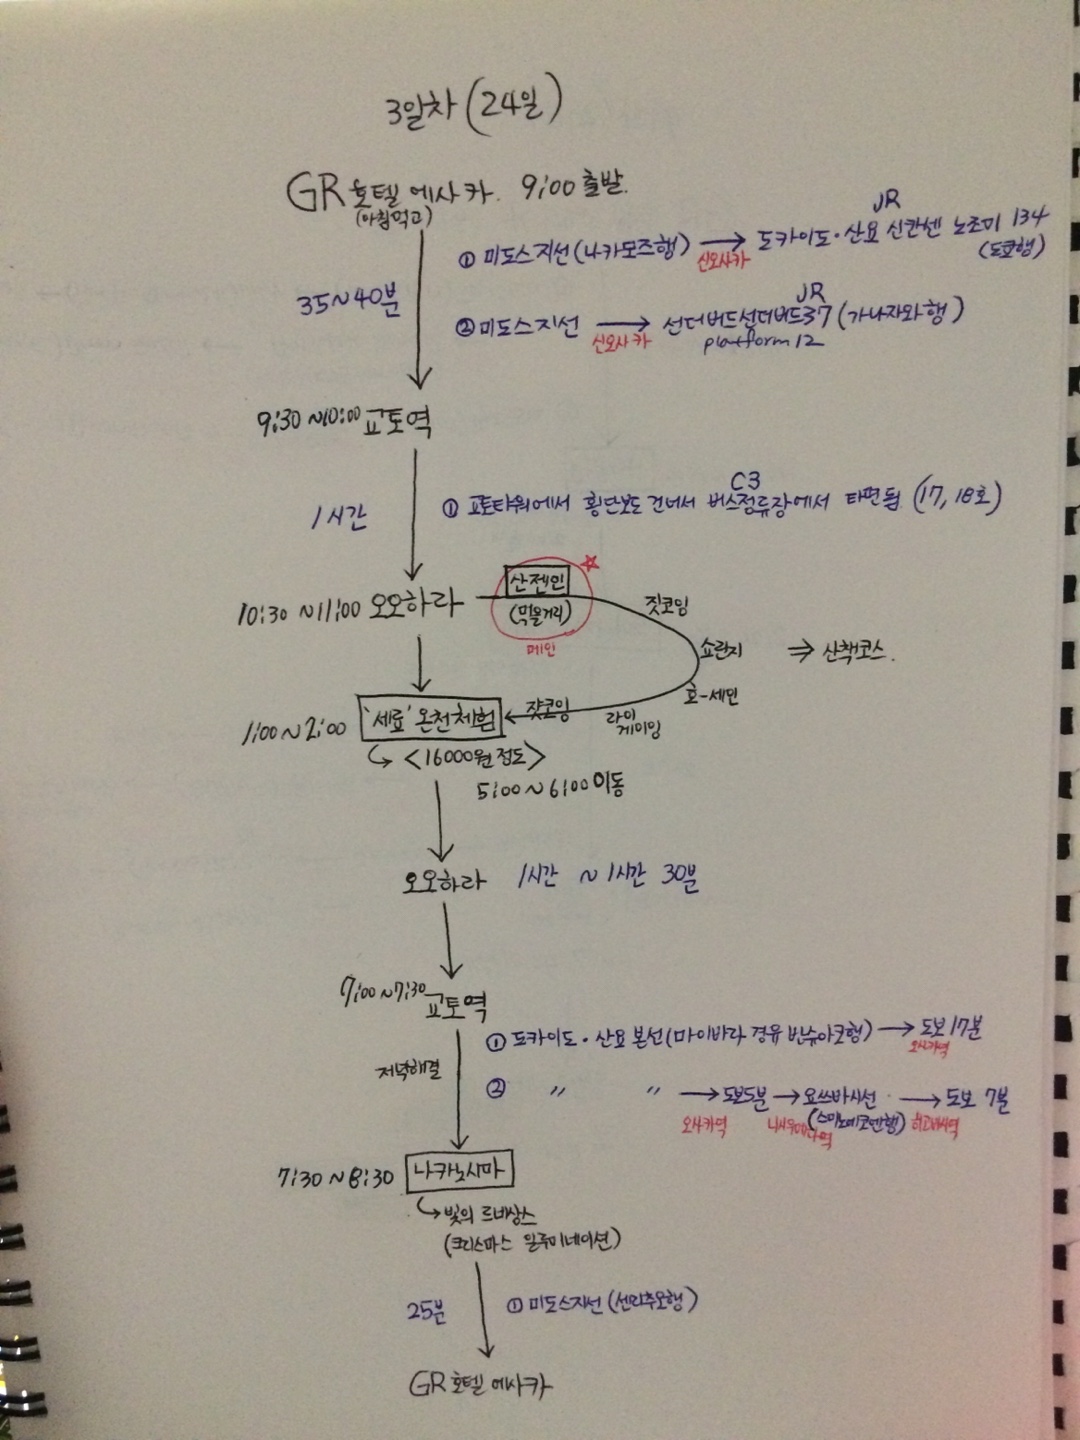 3일차 (24일)
GR호텔 에사카. 9:00 출발.
(아침먹고)
JR
① 미도스지선(나카모즈행) → 도카이도·산요 신칸센 노조미 134
신오사카
(도쿄행)
35~40분
JR
② 미도스지선 → 선더버드선더버드37 (가나자와행)
신오사카
platform 12
9:30 ~10:00 교토역
C3
1시간
① 교토타워에서 횡단보도 건너서 버스정류장에서 타면됨 (17, 18호)
산젠인 ☆
10:30 ~11:00 오오하라
(먹을거리)
메인
짓코잉
쇼란지
⇒ 산책코스.
호-세인
라이
게이잉
쟛코잉
1:00 ~ 2:00 '세료' 온천체험
↳ <16000원 정도>
5:00 ~ 6:00 이동
오오하라 1시간 ~ 1시간 30분
7:00 ~7:30 교토역
① 도카이도·산요 본선(마이바라 경유 반슈아코행) → 도보 17분
오사카역
저녁해결
② 〃 〃 → 도보5분 → 요쓰바시선 → 도보 7분
오사카역
(스미노에코엔행)
히고바시역
7:30 ~ 8:30 나카노시마
↳ 빛의 르네상스
(크리스마스 일루미네이션)
25분
① 미도스지선 (센리추오행)
GR호텔 에사카